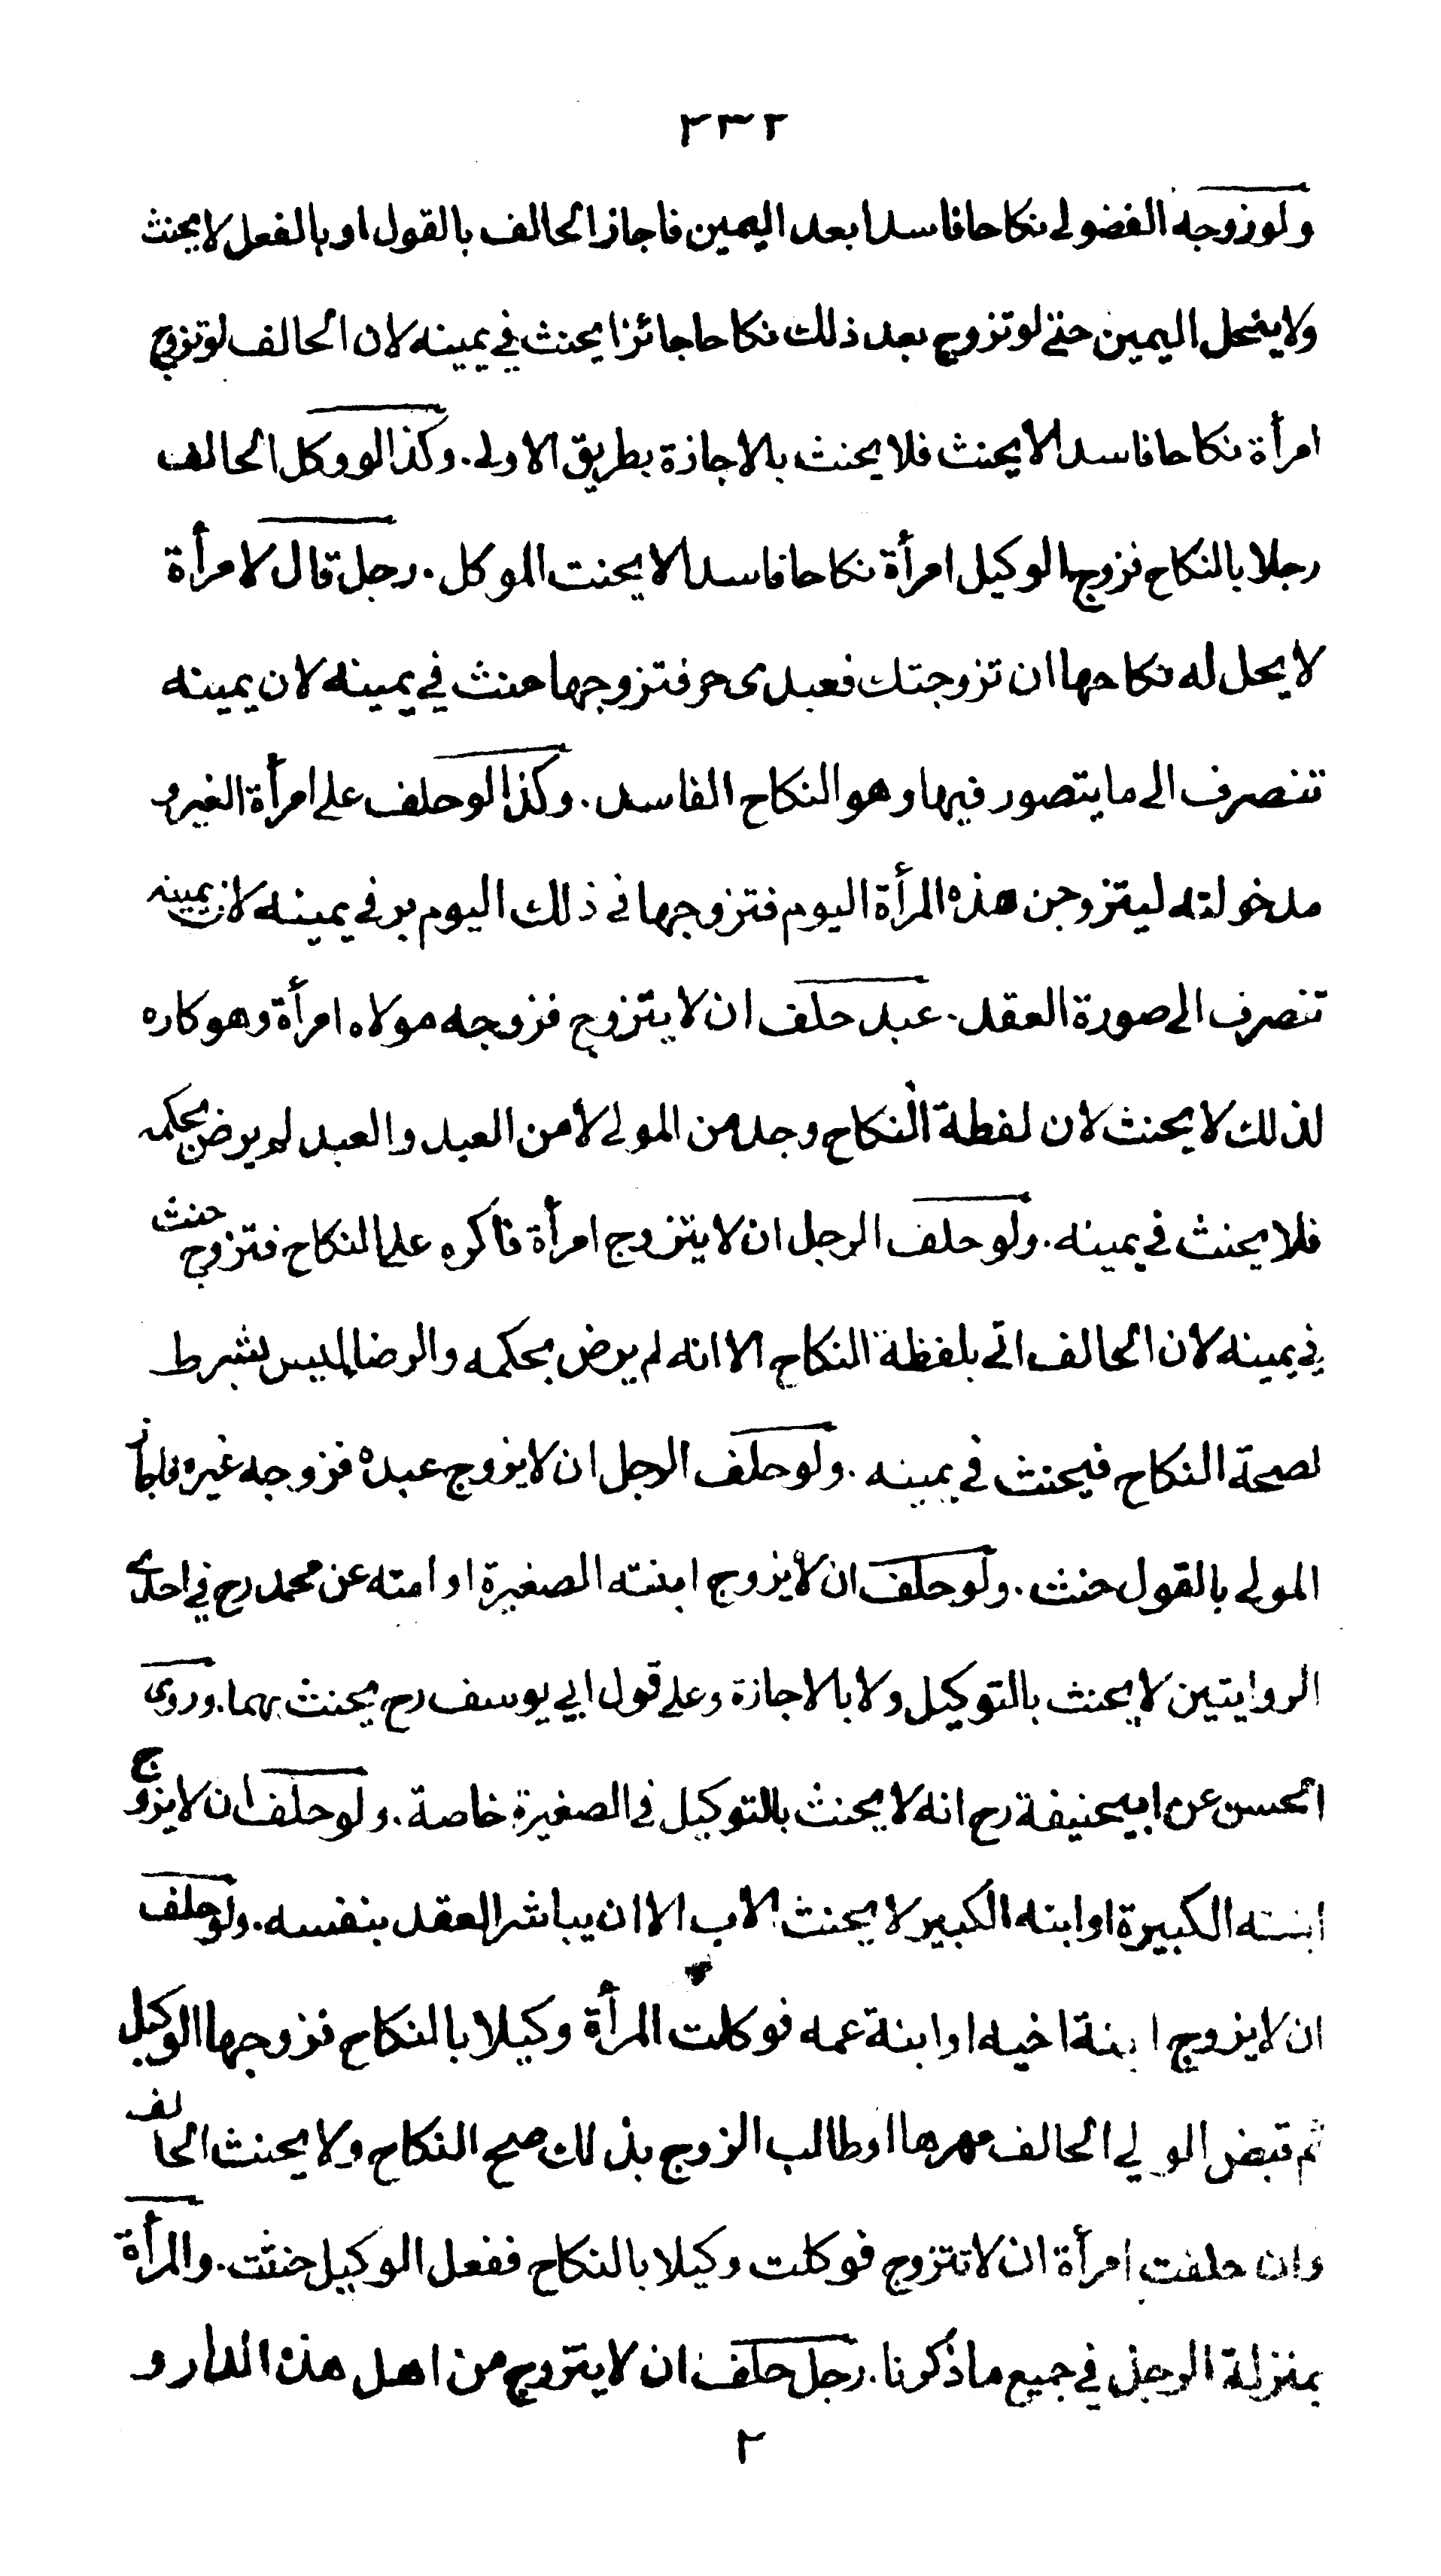 ٢٣٢
ولو زوجه الفضولى نكاحا فاسدا بعد اليمين فاجاز الحالف بالقول او بالفعل لا يحنث
ولا ينحل اليمين حتى لو تزوج بعد ذلك نكاحا جائزا يحنث في يمينه لان الحالف لو تزوج
امرأة نكاحا فاسدا لا يحنث فلا يحنث بالاجازة بطريق الاولى. وكذا لو وكل الحالف
رجلا بالنكاح فزوج الوكيل امرأة نكاحا فاسدا لا يحنث الموكل. رجل قال لامرأة
لا يحل له نكاحها ان تزوجتك فعبدى حر فتزوجها حنث في يمينه لان يمينه
تنصرف الى ما يتصور فيها وهو النكاح الفاسد. وكذا لو حلف على امرأة الغير و
مدخولته ليتزوجن هذه المرأة اليوم فتزوجها في ذلك اليوم بر في يمينه لان يمينه
تنصرف الى صورة العقد. عبد حلف ان لا يتزوج فزوجه مولاه امرأة وهو كاره
لذلك لا يحنث لان لفظة النكاح وجد من المولى لا من العبد والعبد لم يرض بحكمه
فلا يحنث في يمينه. ولو حلف الرجل ان لا يتزوج امرأة فاكره على النكاح فتزوج حنث
في يمينه لان الحالف اتى بلفظة النكاح الا انه لم يرض بحكمه والرضا ليس بشرط
لصحة النكاح فيحنث في يمينه. ولو حلف الرجل ان لا يزوج عبده فزوجه غيره فاجاز
المولى بالقول حنث. ولو حلف ان لا يزوج ابنته الصغيرة او امته عن محمد رح في احدى
الروايتين لا يحنث بالتوكيل ولا بالاجازة وعلى قول ابي يوسف رح يحنث بهما. وروى
الحسن عن ابيحنيفة رح انه لا يحنث بالتوكيل في الصغيرة خاصة. ولو حلف ان لا يزوج
ابنته الكبيرة او ابنه الكبير لا يحنث الاب الا ان يباشر العقد بنفسه. ولو حلف
ان لا يزوج ابنة اخيه او ابنة عمه فوكلت المرأة وكيلا بالنكاح فزوجها الوكيل
ثم قبض الولي الحالف مهرها او طالب الزوج بذلك صح النكاح ولا يحنث الحالف
وان حلفت امرأة ان لا تتزوج فوكلت وكيلا بالنكاح ففعل الوكيل حنثت. والمرأة
بمنزلة الرجل في جميع ما ذكرنا. رجل حلف ان لا يتزوج من اهل هذه الدار و
٢